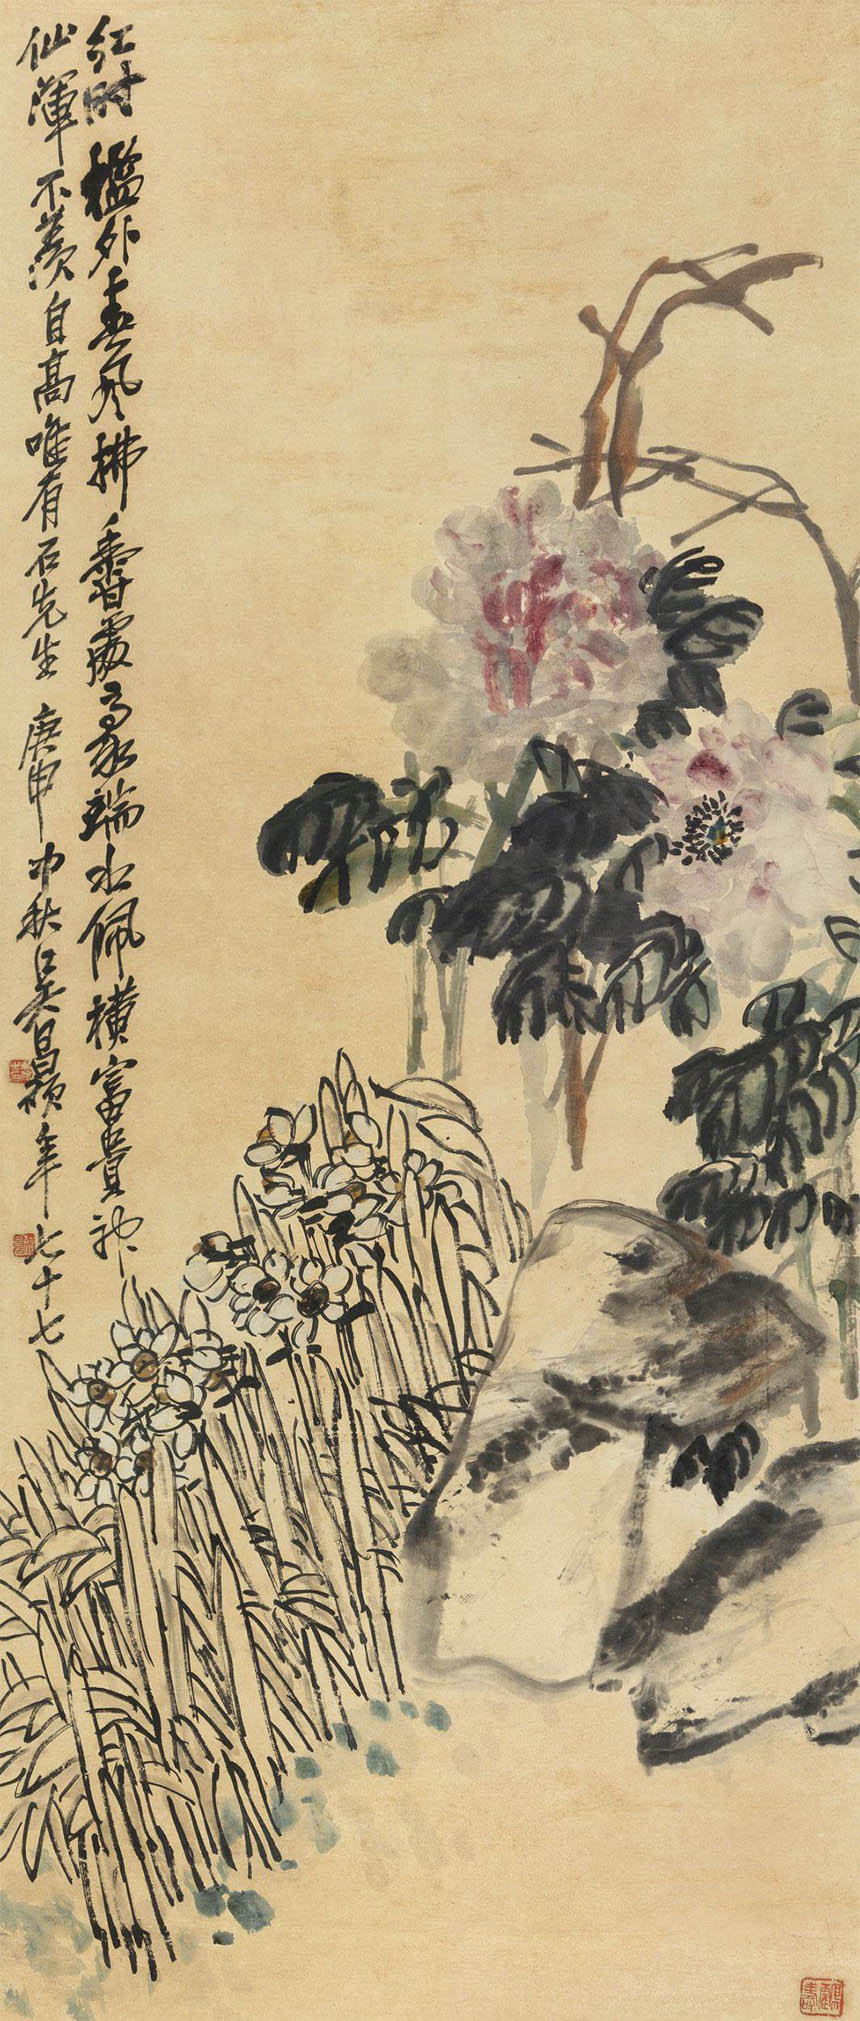 红时槛外春风拂香处豪家瑞水佩横富贵神
仙浑不羡自高唯有石先生庚申中秋吴昌硕年七十七